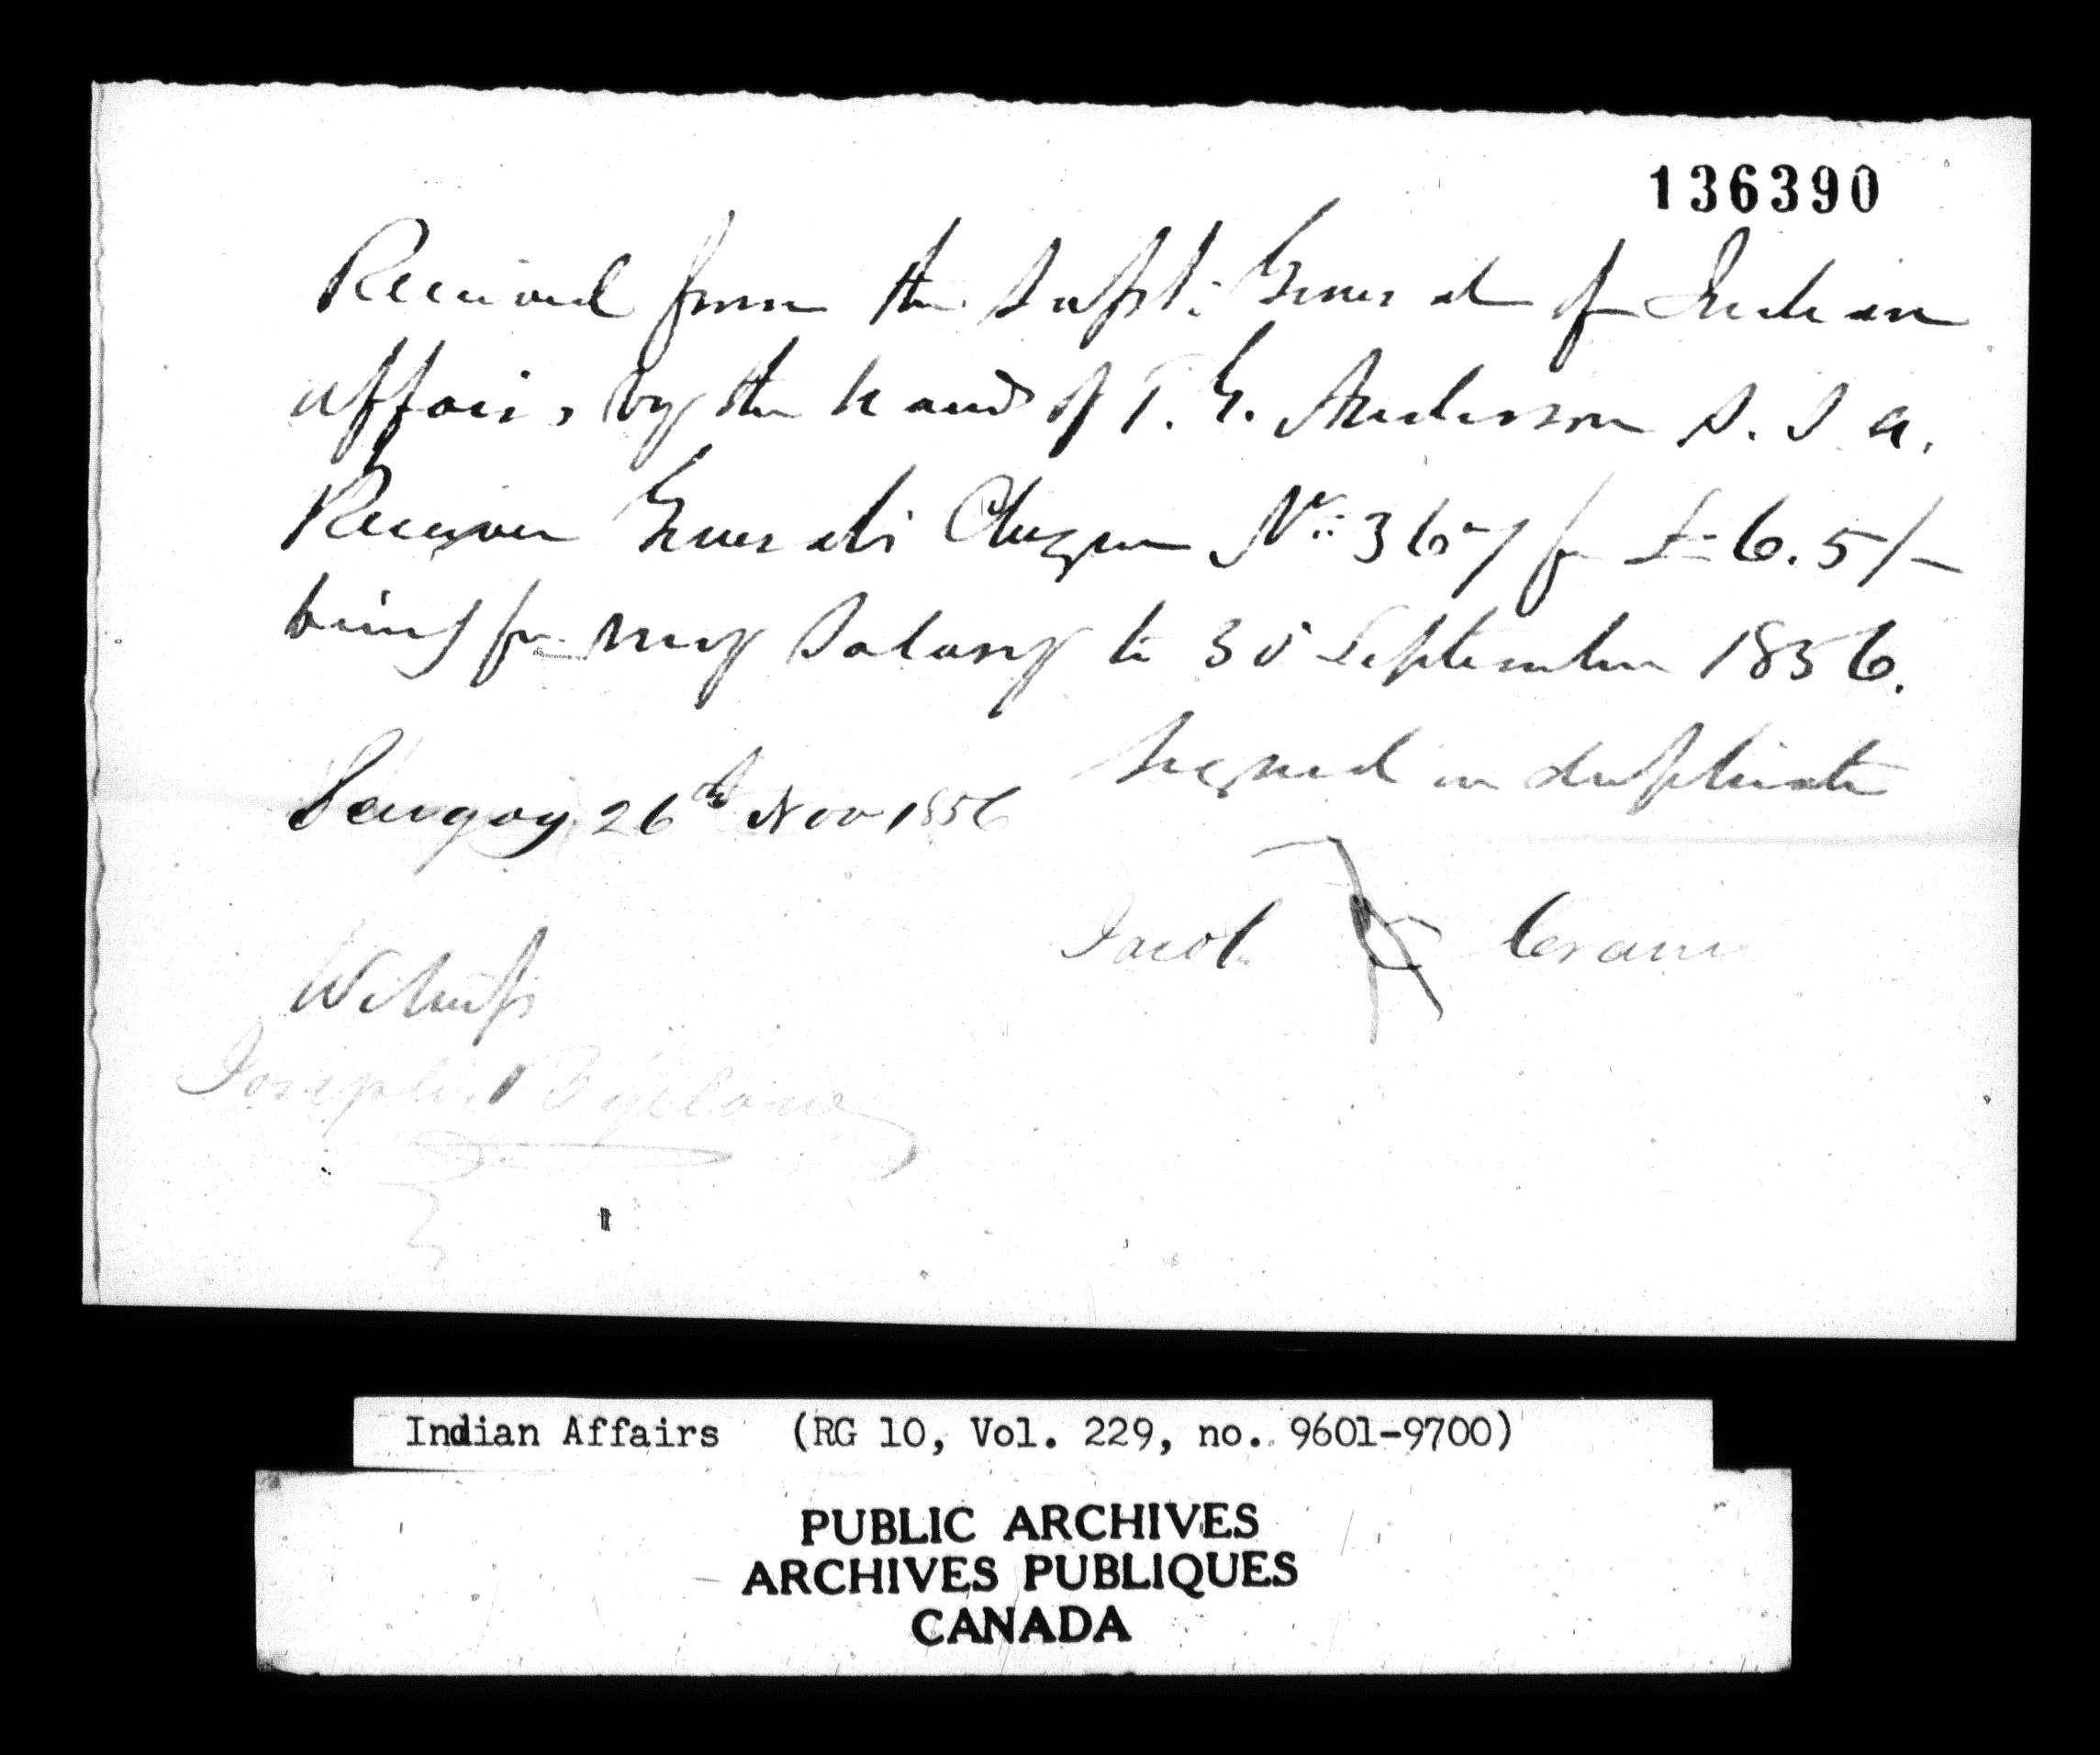 136390
Received from the Supt: General of Indian
affairs, by the hands of T. G. Anderson S. I. A.
Receiver Generals Cheque No: 367 for £6.5/-
being for my Salary to 30 September 1856.
Signed in duplicate
Saugay 26th Nov 1856
Jacob Crane
Witness
Joseph
Indian Affairs (RG 10, Vol. 229, no. 9601-9700)
PUBLIC ARCHIVES
ARCHIVES PUBLIQUES
CANADA